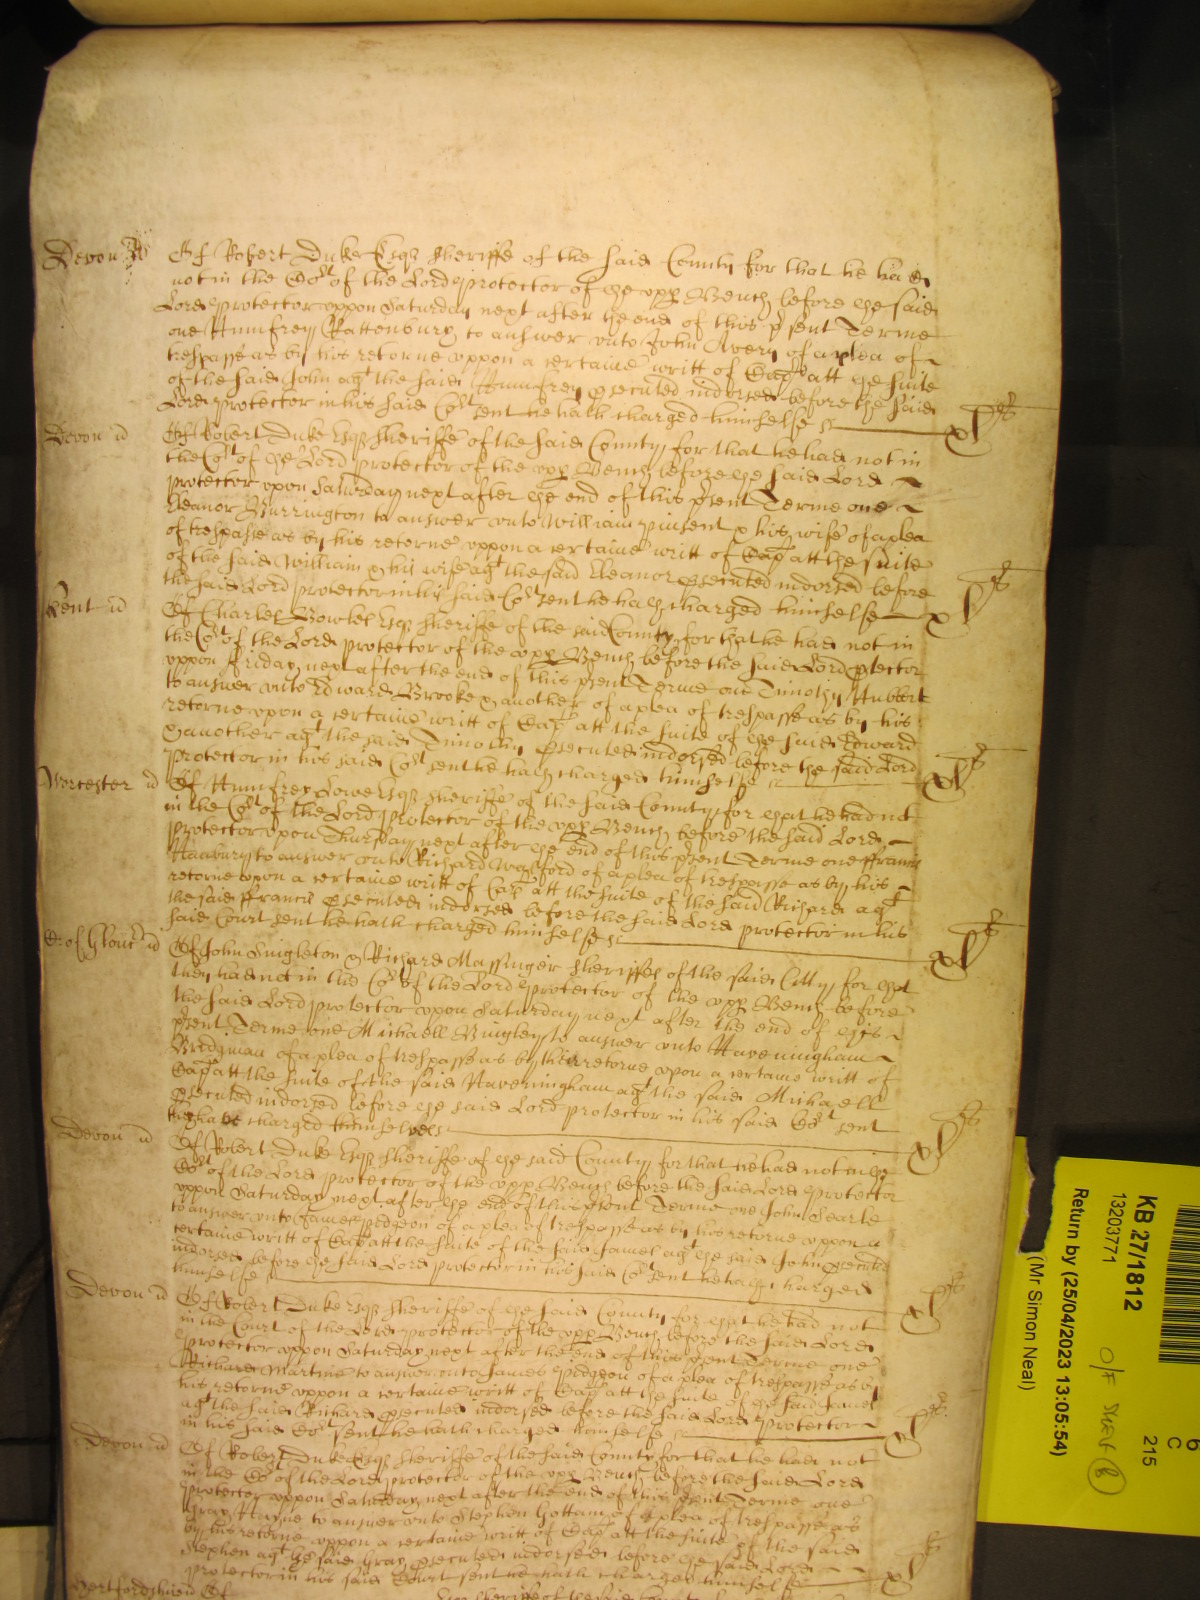 Devon ss Of Robert Duke Esqr Sheriffe of the said County for that he had
not in the Cort of the Lord Protector of the vpp Bench before the said
Lord Protector vppon Saturday next after the end of this psent Terme
one Humfrey Rattenbury to answer vnto John Avery of a plea of
trespasse as by his retorne vppon a certaine writt of Cap att the suite
of the said John agt the said Humfrey psecuted indorsed before the said
Lord Protector in his said Cort sent he hath charged himselfe xls
Devon ss Of Robert Duke Esqr Sheriffe of the said County for that he had not in
the Cort of the Lord Protector of the vpp Bench before the said Lord
Protector vpon Saturday next after the end of this psent Terme one
Eleanor Burrington to answer vnto William Pinsent & his wife of a plea
of trespasse as by his retorne vppon a certaine writt of Cap att the suite
of the said William & his wife agt the said Eleanor psecuted indorsed before
the said Lord Protector in his said Cort sent he hath charged himselfe xls
Kent ss Of Charles Bowles Esqr Sheriffe of the said County for that he had not in
the Cort of the Lord Protector of the vpp Bench before the said Lord Ptector
vppon Friday next after the end of this psent Terme one Timothy Hubbert
to answer vnto Edward Brooke & another of a plea of trespasse as by his
retorne vpon a certaine writt of Cap att the suite of the said Edward
& another agt the said Timothy psecuted indorsed before the said Lord
Protector in his said Cort sent he hath charged himselfe xls
Worcester ss Of Humfrey Lowe Esqr Sheriffe of the said County for that he had not
in the Cort of the Lord Protector of the vpp Bench before the said Lord
Protector vpon Thursday next after the end of this psent Terme one Francis
to answer vnto Richard of a plea of trespasse as by his
retorne vpon a certaine writt of Cap att the suite of the said Richard agt
the said Francis psecuted indorsed before the said Lord Protector in his
said Court sent he hath charged himselfe xls
C of Glouc ss Of John Singleton & Richard Massinger Sheriffes of the said Citty for that
they had not in the Cort of the Lord Protector of the vpp Bench before
the said Lord Protector vpon Saturday next after the end of this
psent Terme one Michaell Bingley to answer vnto Haveningham
Bridgman of a plea of trespasse as by their retorne vpon a certaine writt of
Cap att the suite of the said Haveningham agt the said Michaell
psecuted indorsed before the said Lord Protector in his said Cort sent
they have charged themselves xls
Devon ss Of Robert Duke Esqr Sheriffe of the said County for that he had not in the
Cort of the Lord Protector of the vpp Bench before the said Lord Protector
vppon Saturday next after the end of this psent Terme one John Searle
to answer vnto James Pidgeon of a plea of trespasse as by his retorne vppon a
certaine writt of Cap att the suite of the said James agt the said John psecuted
indorsed before the said Lord Protector in his said Cort sent he hath charged
himselfe xls
Devon ss Of Robert Duke Esqr Sheriffe of the said County for that he had not
in the Court of the Lord Protector of the vpp Bench before the said Lord
Protector vppon Saturday next after the end of this psent Terme one
Richard Martine to answer vnto James Pidgeon of a plea of trespasse as by
his retorne vppon a certaine writt of Cap att the suite of the said James
agt the said Richard psecuted indorsed before the said Lord Protector
in his said Cort sent he hath charged himselfe xls
Devon ss Of Robert Duke Esqr Sheriffe of the said County for that he had not
in the Cort of the Lord Protector of the vpp Bench before the said Lord
Protector vppon Saturday next after the end of this psent Terme one
Gray Mayne to answer vnto Stephen Gottam of a plea of trespasse as
by his retorne vppon a certaine writt of Cap att the suite of the said
Stephen agt the said Gray psecuted indorsed before the said Lord
Protector in his said Court sent he hath charged himselfe xls
Hertfordshire Of Esqr Sheriffe of the said County
KB 27/1812
13203771
Return by (25/04/2023 13:05:54)
(Mr Simon Neal)
6
C
215
O/F